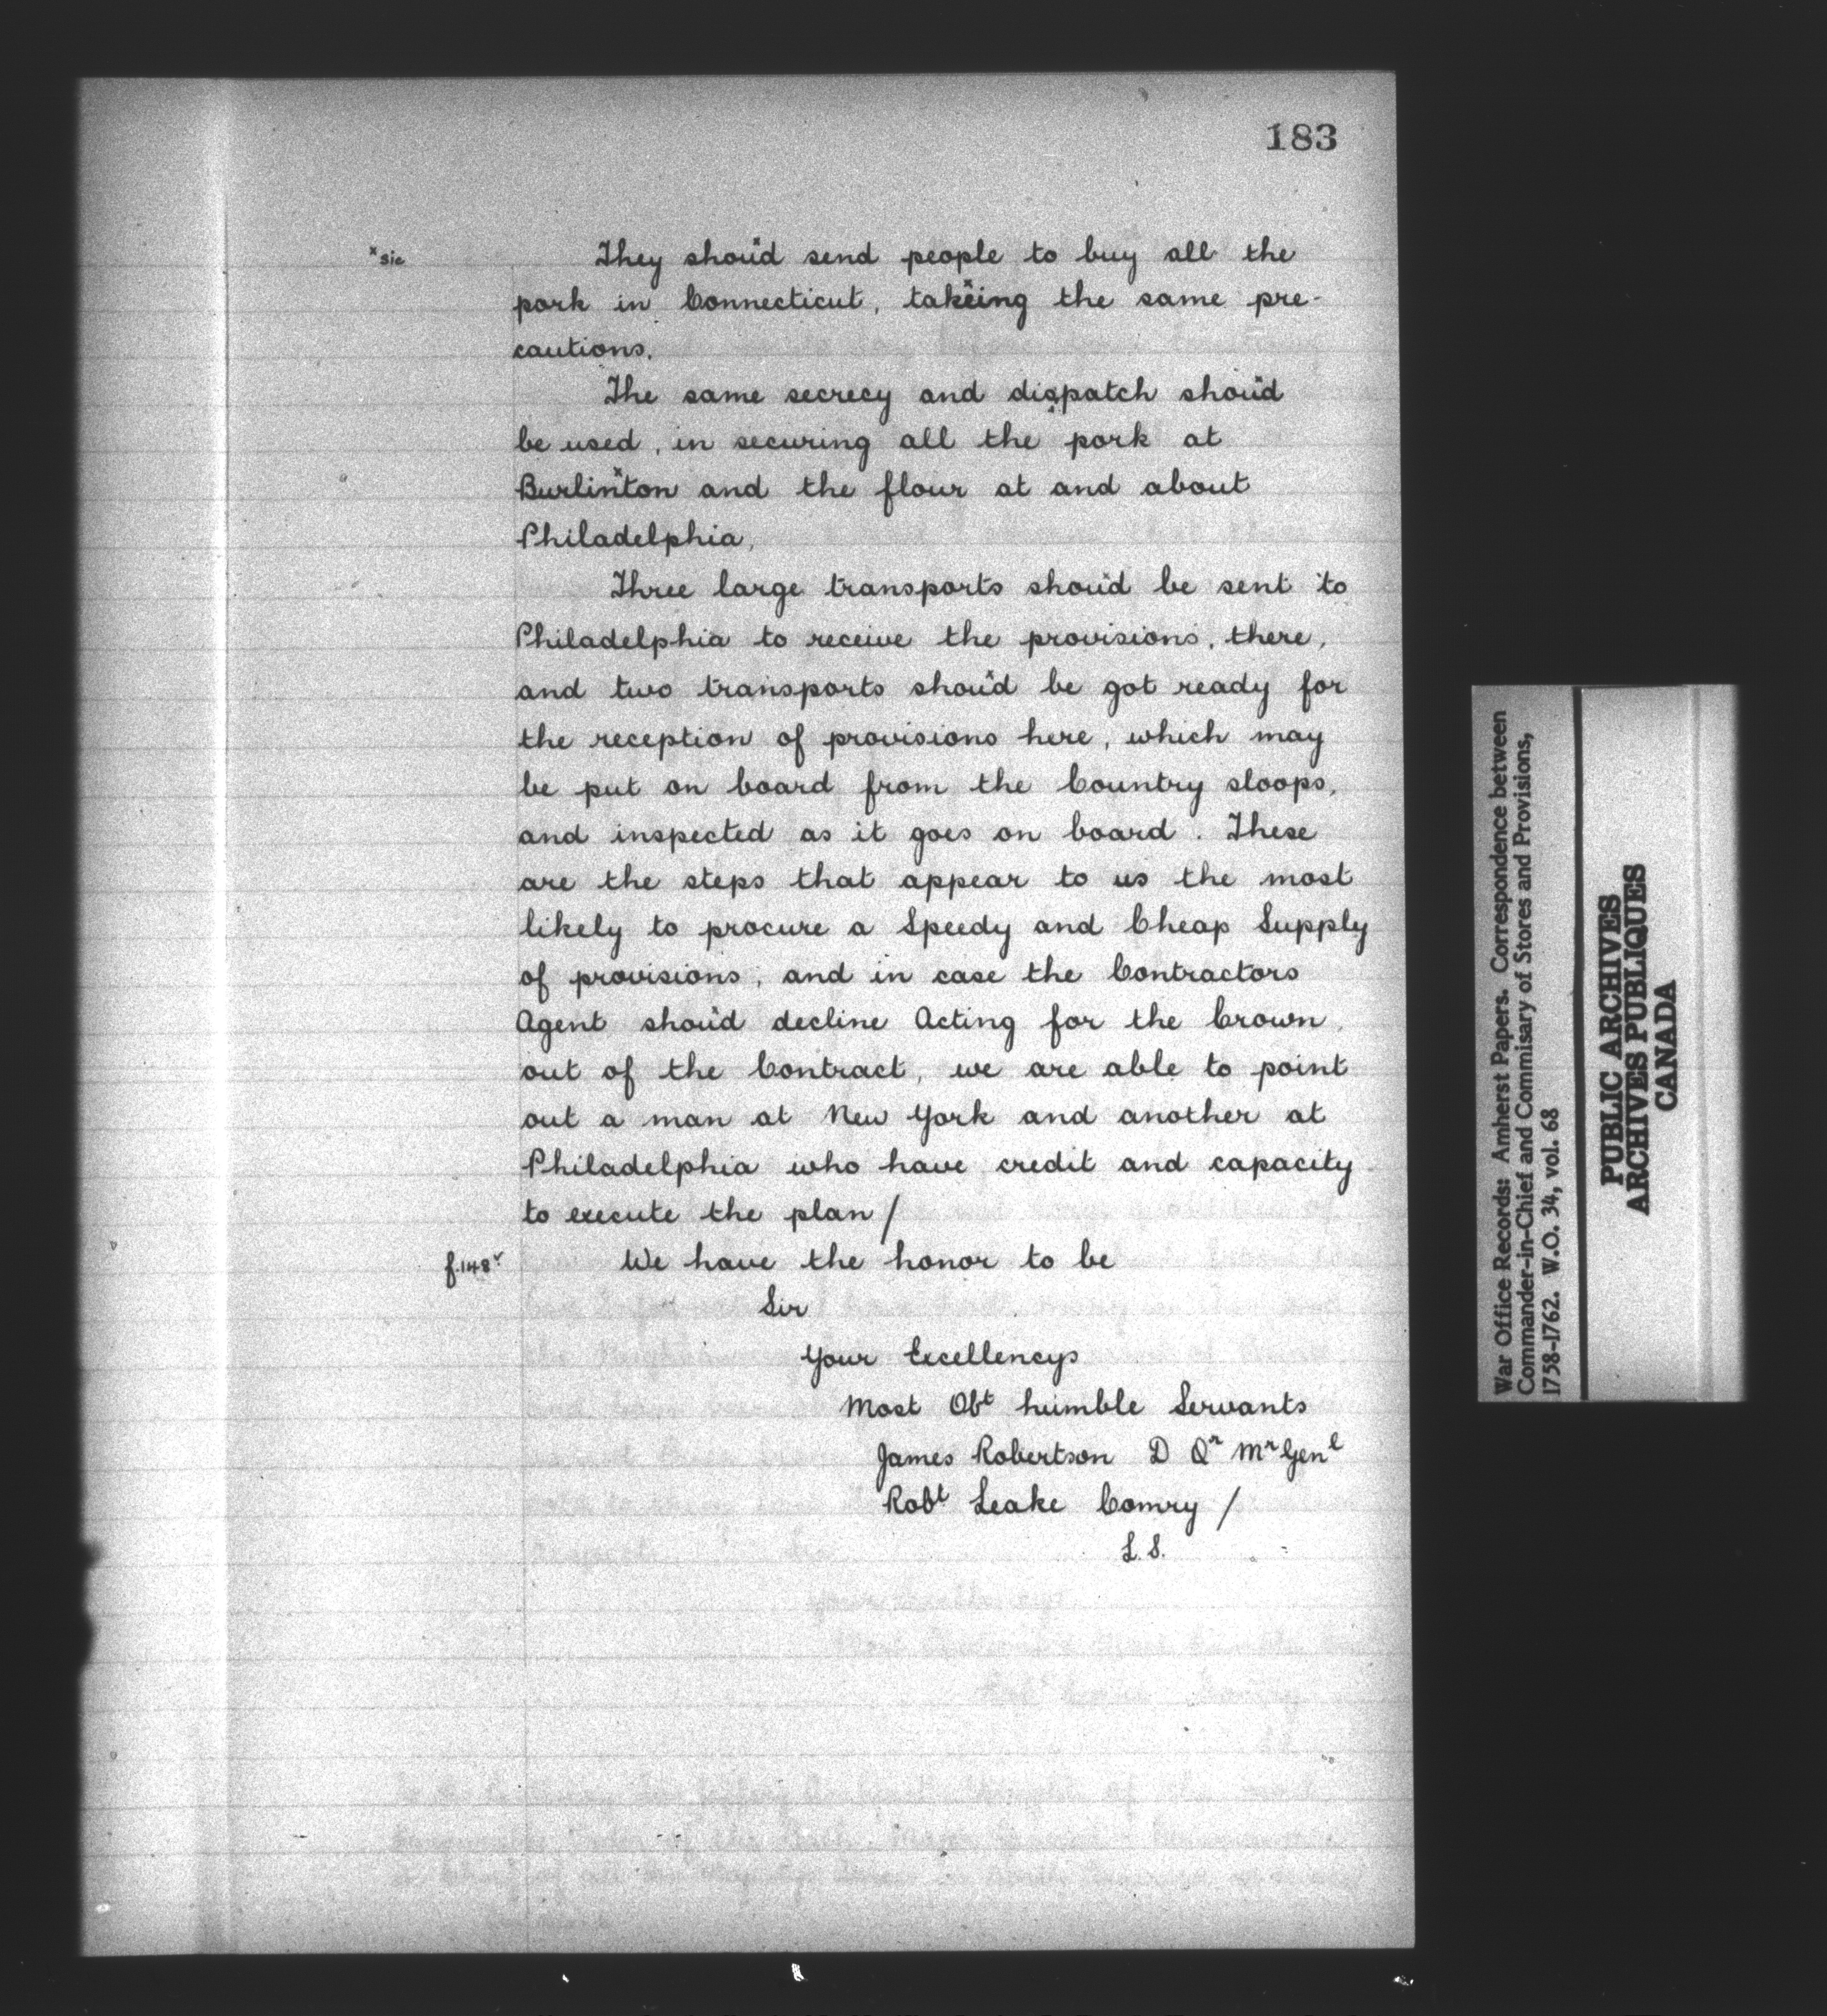 183
x sic
They shou'd send people to buy all the
pork in Connecticut, takeing the same pre-
cautions.
The same secrecy and dispatch shou'd
be used, in securing all the pork at
Burlinton and the flour at and about
Philadelphia,
Three large transports shou'd be sent to
Philadelphia to receive the provisions, there,
and two transports shou'd be got ready for
the reception of provisions here, which may
be put on board from the Country sloops,
and inspected as it goes on board. These
are the steps that appear to us the most
likely to procure a Speedy and Cheap Supply
of provisions; and in case the Contractors
Agent shou'd decline Acting for the Crown,
out of the Contract, we are able to point
out a man at New York and another at
Philadelphia who have credit and capacity
to execute the plan /
f.148v
We have the honor to be
Sir
Your Excellencys
Most Obt humble Servants
James Robertson D Qr Mr Genl
Robt Leake Comry /
L.S.
War Office Records: Amherst Papers. Correspondence between
Commander-in-Chief and Commisary of Stores and Provisions,
1758-1762. W.O. 34, vol. 68
PUBLIC ARCHIVES
ARCHIVES PUBLIQUES
CANADA